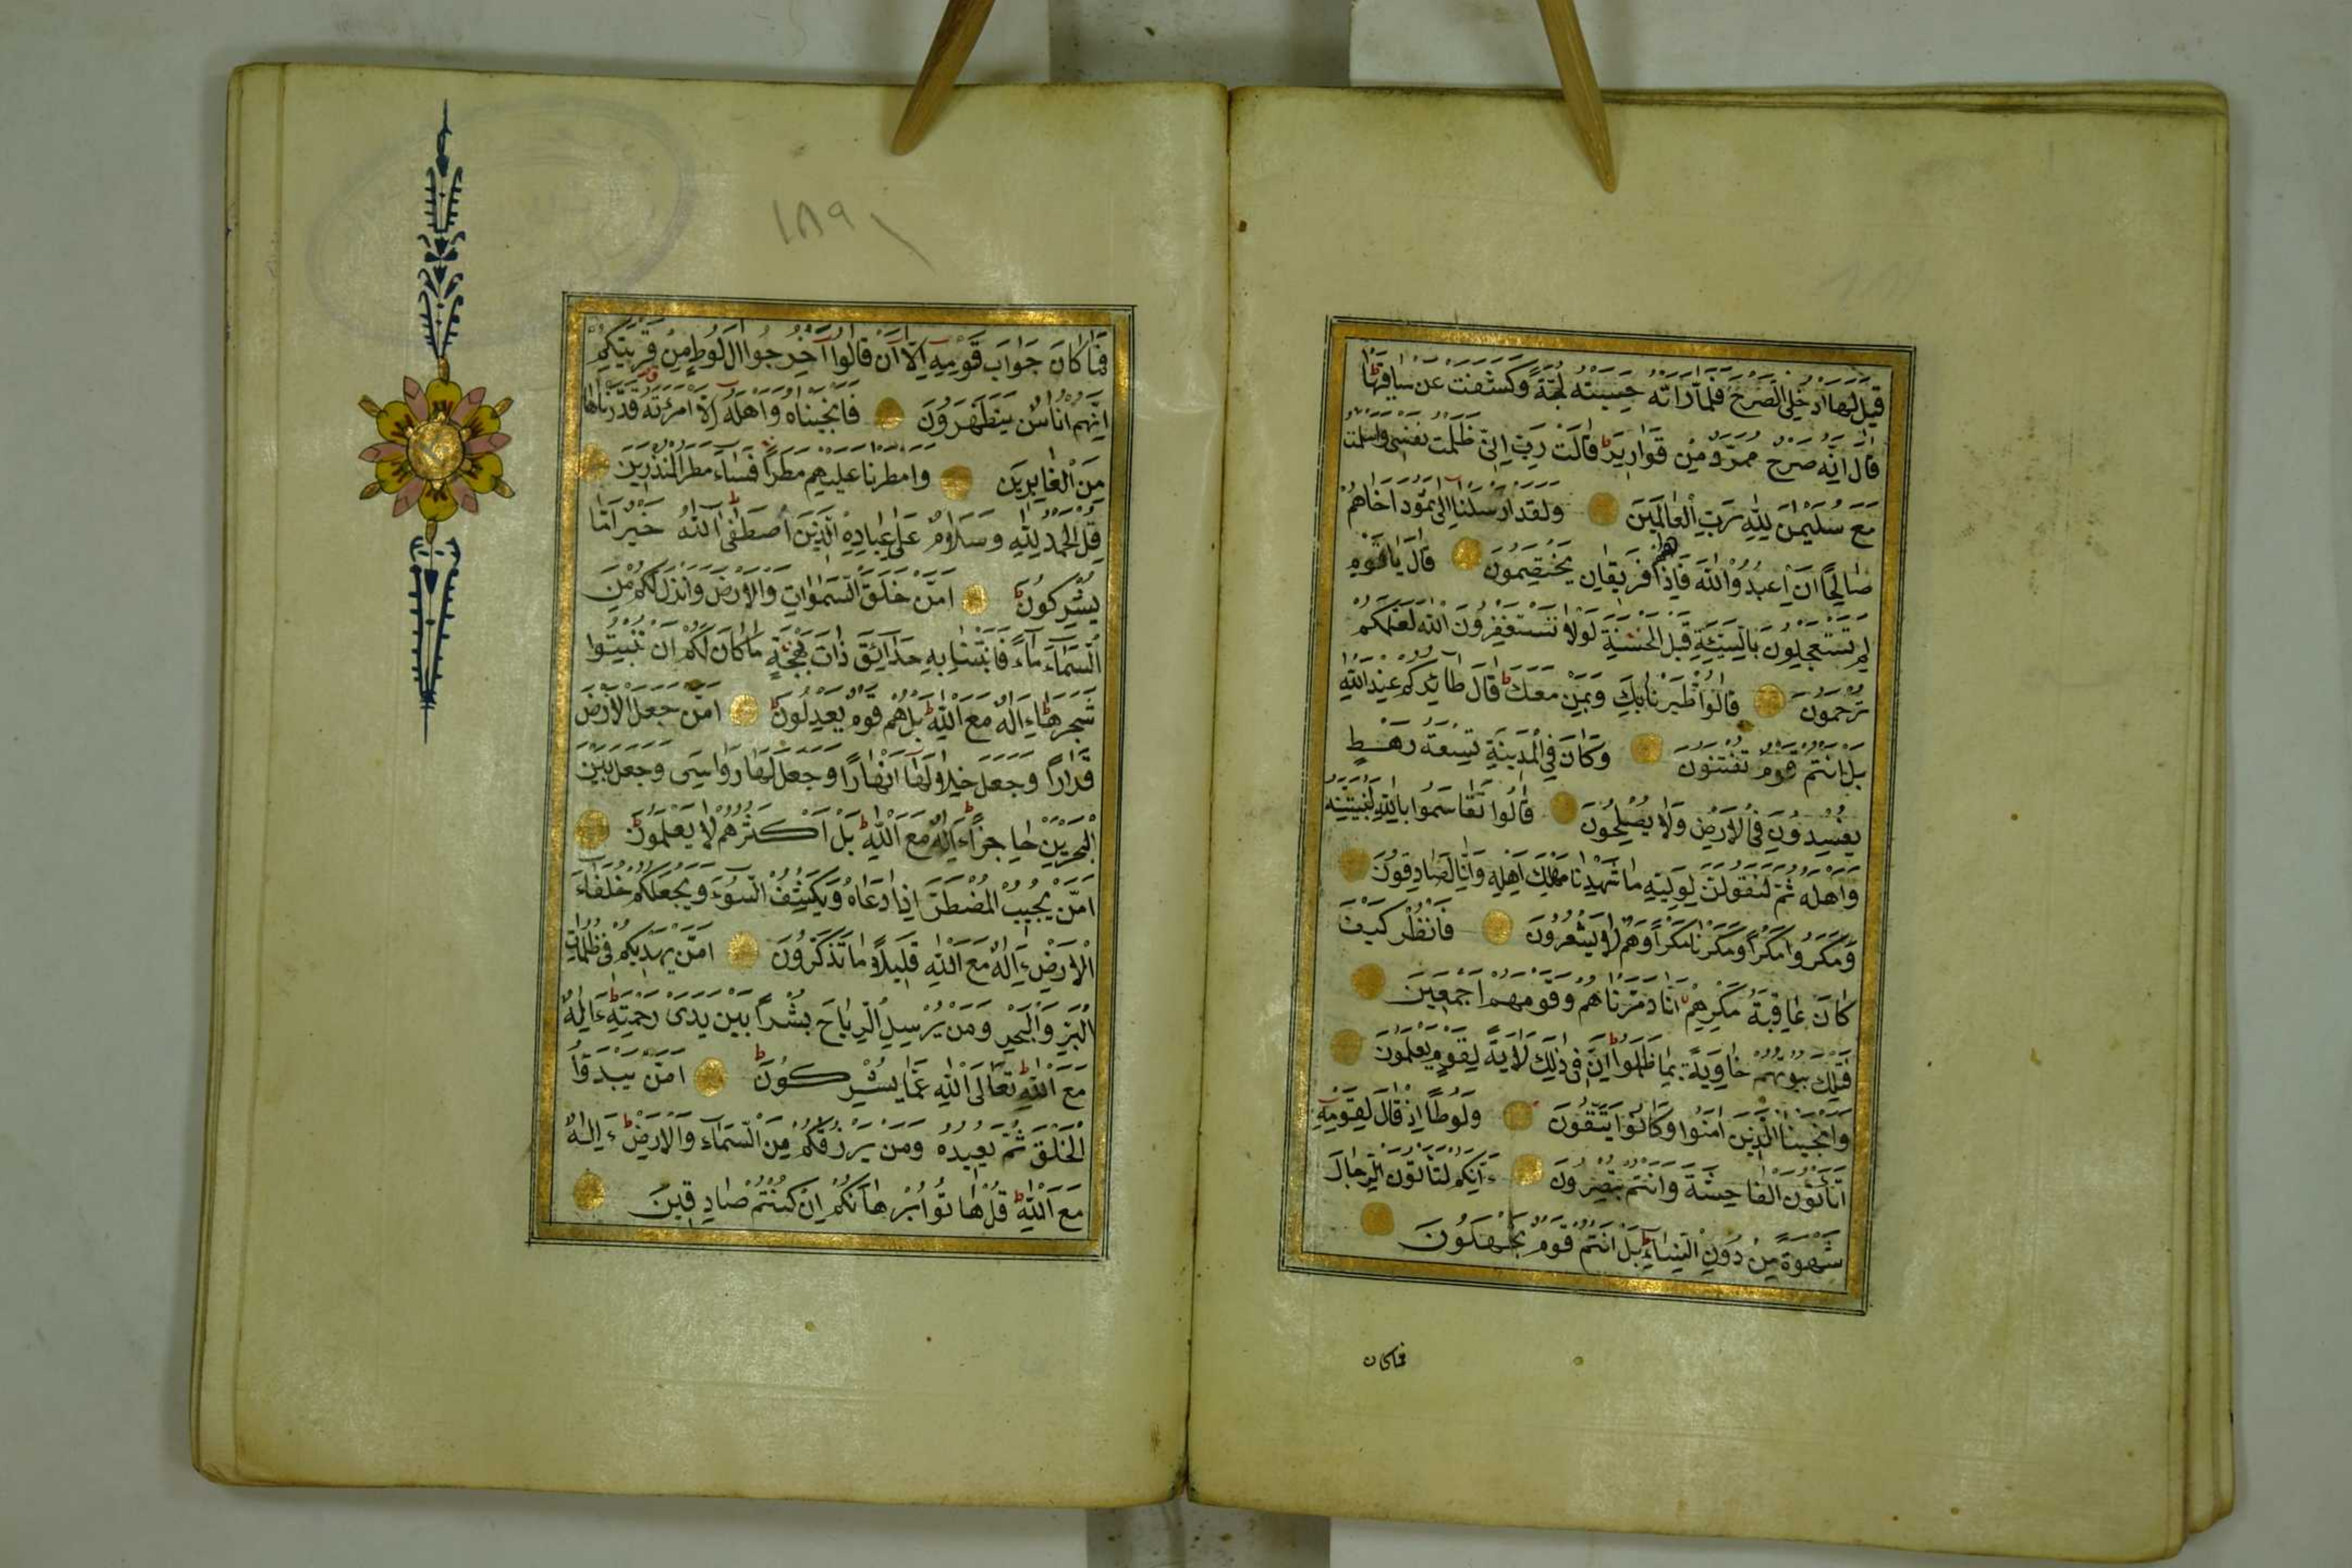 قِيلَ لَهَا ادْخُلِي الصَّرْحَ فَلَمَّا رَاَتْهُ حَسِبَتْهُ لُجَّةً وَكَشَفَتْ عَنْ سَاقَيْهَا
قَالَ اِنَّهُ صَرْحٌ مُمَرَّدٌ مِنْ قَوَارِيرَ قَالَتْ رَبِّ اِنِّي ظَلَمْتُ نَفْسِي وَاَسْلَمْتُ
مَعَ سُلَيْمٰنَ لِلّٰهِ رَبِّ الْعَالَمِينَ وَلَقَدْ اَرْسَلْنَا اِلٰى ثَمُودَ اَخَاهُمْ
صَالِحًا اَنِ اعْبُدُوا اللّٰهَ فَاِذَا هُمْ فَرِيقَانِ يَخْتَصِمُونَ قَالَ يَا قَوْمِ
لِمَ تَسْتَعْجِلُونَ بِالسَّيِّئَةِ قَبْلَ الْحَسَنَةِ لَوْلَا تَسْتَغْفِرُونَ اللّٰهَ لَعَلَّكُمْ
تُرْحَمُونَ قَالُوا اطَّيَّرْنَا بِكَ وَبِمَنْ مَعَكَ قَالَ طَائِرُكُمْ عِنْدَ اللّٰهِ
بَلْ اَنْتُمْ قَوْمٌ تُفْتَنُونَ وَكَانَ فِي الْمَدِينَةِ تِسْعَةُ رَهْطٍ
يُفْسِدُونَ فِي الْاَرْضِ وَلَا يُصْلِحُونَ قَالُوا تَقَاسَمُوا بِاللّٰهِ لَنُبَيِّتَنَّهُ
وَاَهْلَهُ ثُمَّ لَنَقُولَنَّ لِوَلِيِّهِ مَا شَهِدْنَا مَهْلِكَ اَهْلِهِ وَاِنَّا لَصَادِقُونَ
وَمَكَرُوا مَكْرًا وَمَكَرْنَا مَكْرًا وَهُمْ لَا يَشْعُرُونَ فَانْظُرْ كَيْفَ
كَانَ عَاقِبَةُ مَكْرِهِمْ اَنَّا دَمَّرْنَاهُمْ وَقَوْمَهُمْ اَجْمَعِينَ
فَتِلْكَ بُيُوتُهُمْ خَاوِيَةً بِمَا ظَلَمُوا اِنَّ فِي ذٰلِكَ لَاٰيَةً لِقَوْمٍ يَعْلَمُونَ
وَاَنْجَيْنَا الَّذِينَ اٰمَنُوا وَكَانُوا يَتَّقُونَ وَلُوطًا اِذْ قَالَ لِقَوْمِهِ
اَتَأْتُونَ الْفَاحِشَةَ وَاَنْتُمْ تُبْصِرُونَ ءَاِنَّكُمْ لَتَأْتُونَ الرِّجَالَ
شَهْوَةً مِنْ دُونِ النِّسَاءِ بَلْ اَنْتُمْ قَوْمٌ تَجْهَلُونَ
فما كان
١٨٩
فَمَا كَانَ جَوَابَ قَوْمِهِ اِلَّا اَنْ قَالُوا اَخْرِجُوا اٰلَ لُوطٍ مِنْ قَرْيَتِكُمْ
اِنَّهُمْ اُنَاسٌ يَتَطَهَّرُونَ فَاَنْجَيْنَاهُ وَاَهْلَهُ اِلَّا امْرَاَتَهُ قَدَّرْنَاهَا
مِنَ الْغَابِرِينَ وَاَمْطَرْنَا عَلَيْهِمْ مَطَرًا فَسَاءَ مَطَرُ الْمُنْذَرِينَ
قُلِ الْحَمْدُ لِلّٰهِ وَسَلَامٌ عَلٰى عِبَادِهِ الَّذِينَ اصْطَفٰى اَللّٰهُ خَيْرٌ اَمَّا
يُشْرِكُونَ اَمَّنْ خَلَقَ السَّمٰوَاتِ وَالْاَرْضَ وَاَنْزَلَ لَكُمْ مِنَ
السَّمَاءِ مَاءً فَاَنْبَتْنَا بِهِ حَدَائِقَ ذَاتَ بَهْجَةٍ مَا كَانَ لَكُمْ اَنْ تُنْبِتُوا
شَجَرَهَا ءَاِلٰهٌ مَعَ اللّٰهِ بَلْ هُمْ قَوْمٌ يَعْدِلُونَ اَمَّنْ جَعَلَ الْاَرْضَ
قَرَارًا وَجَعَلَ خِلَالَهَا اَنْهَارًا وَجَعَلَ لَهَا رَوَاسِيَ وَجَعَلَ بَيْنَ
الْبَحْرَيْنِ حَاجِزًا ءَاِلٰهٌ مَعَ اللّٰهِ بَلْ اَكْثَرُهُمْ لَا يَعْلَمُونَ
اَمَّنْ يُجِيبُ الْمُضْطَرَّ اِذَا دَعَاهُ وَيَكْشِفُ السُّوءَ وَيَجْعَلُكُمْ خُلَفَاءَ
الْاَرْضِ ءَاِلٰهٌ مَعَ اللّٰهِ قَلِيلًا مَا تَذَكَّرُونَ اَمَّنْ يَهْدِيكُمْ فِي ظُلُمَاتِ
الْبَرِّ وَالْبَحْرِ وَمَنْ يُرْسِلُ الرِّيَاحَ بُشْرًا بَيْنَ يَدَيْ رَحْمَتِهِ ءَاِلٰهٌ
مَعَ اللّٰهِ تَعَالَى اللّٰهُ عَمَّا يُشْرِكُونَ اَمَّنْ يَبْدَؤُا
الْخَلْقَ ثُمَّ يُعِيدُهُ وَمَنْ يَرْزُقُكُمْ مِنَ السَّمَاءِ وَالْاَرْضِ ءَاِلٰهٌ
مَعَ اللّٰهِ قُلْ هَاتُوا بُرْهَانَكُمْ اِنْ كُنْتُمْ صَادِقِينَ